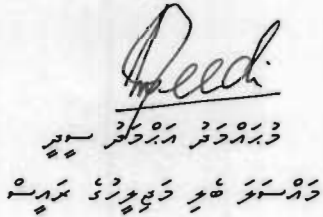 މުޙައްމަދު އަޙްމަދު ސީދީ
މައްސަލަ ބެލި މަޖިލީހުގެ ރައީސް